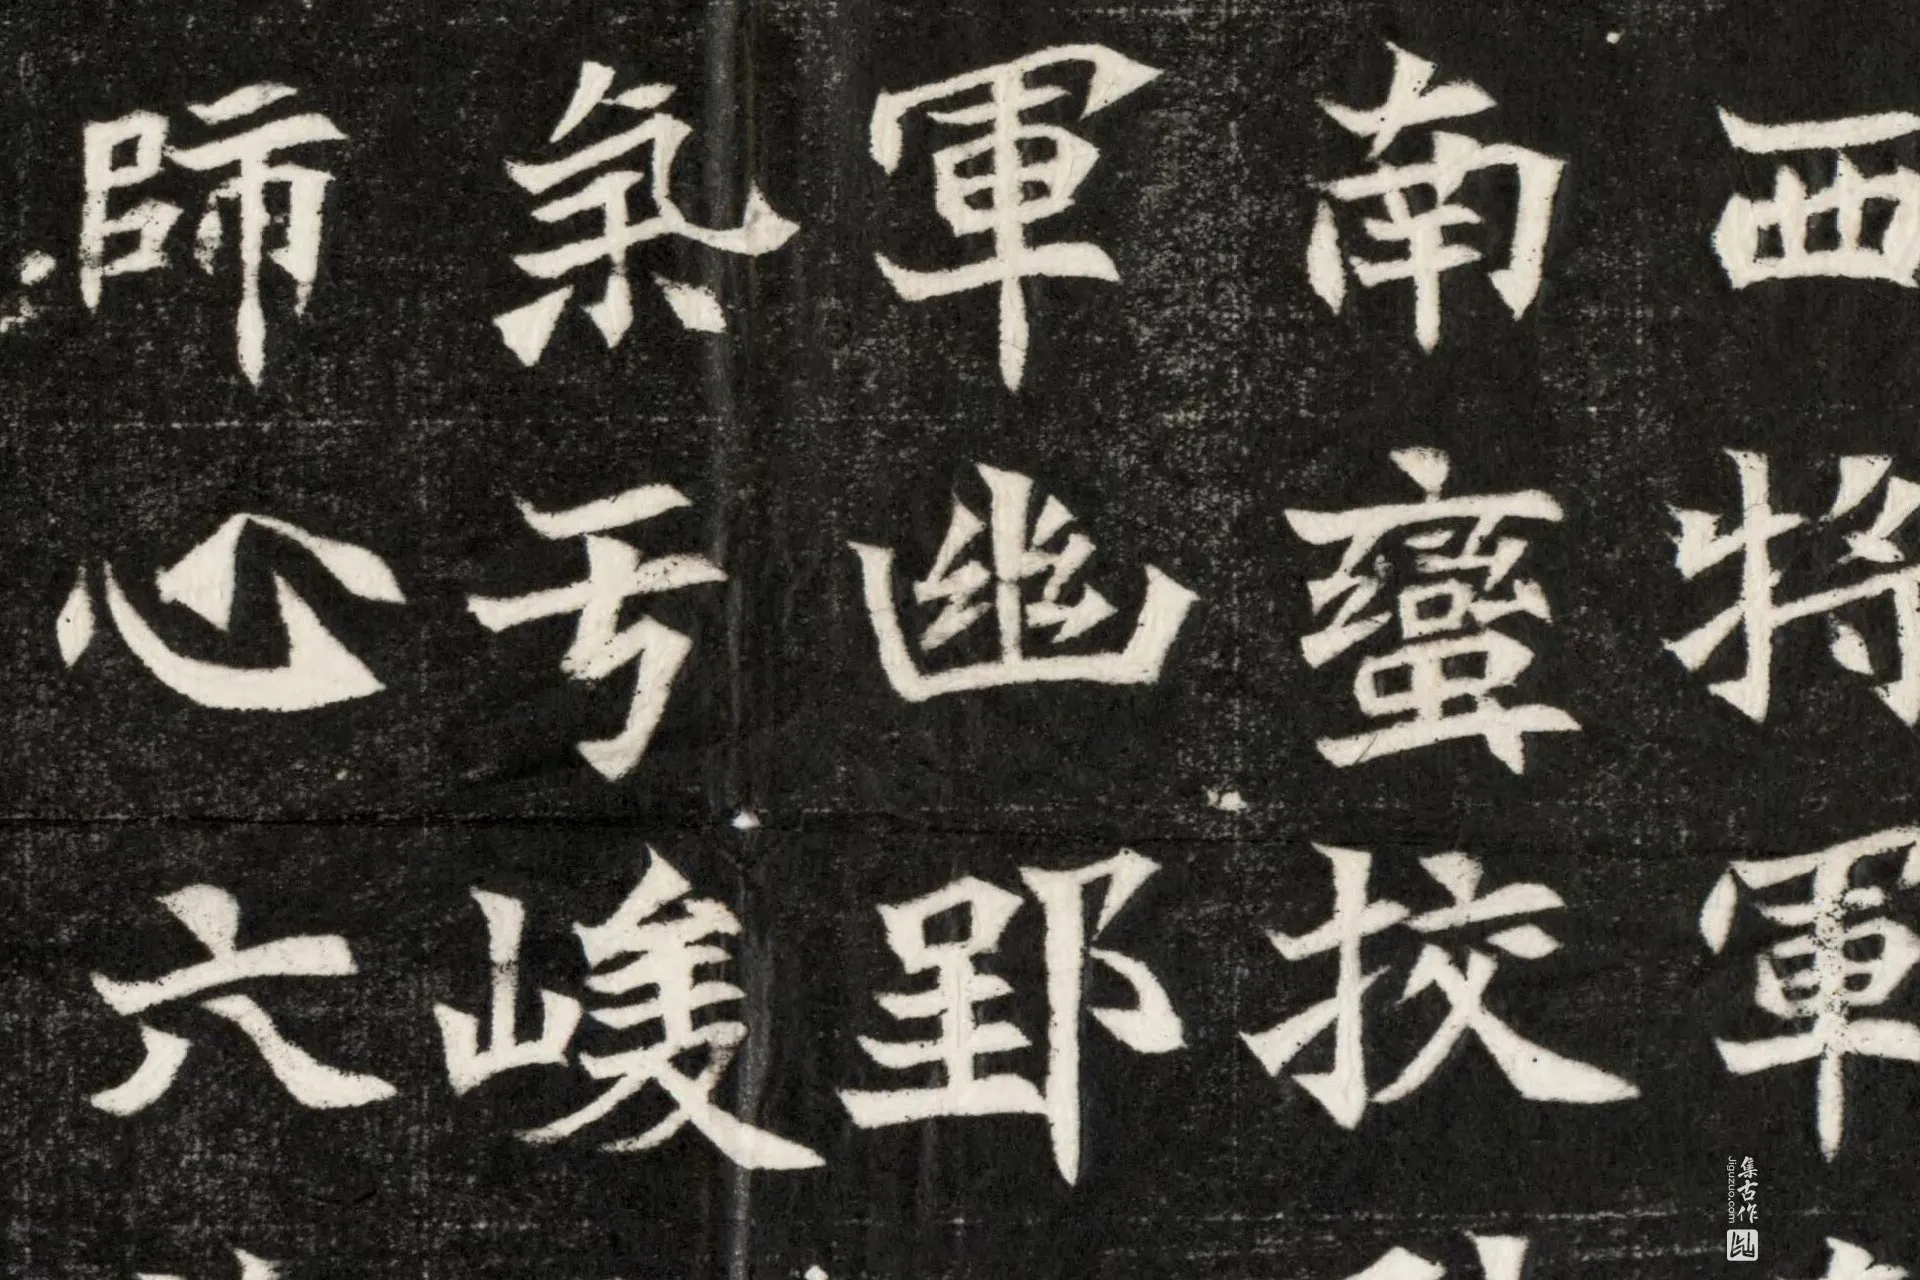 西将軍
南蠻挍
軍幽郢
氣亏峻
師心六
集古作
Jiguzuo.com